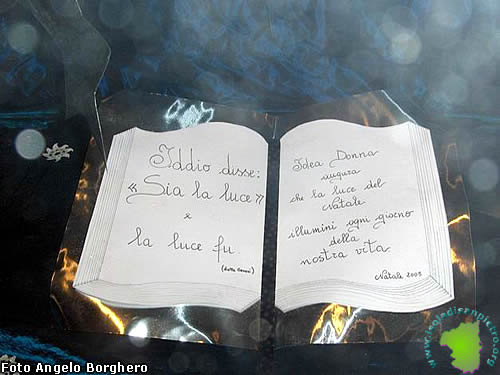 Iddio disse:
«Sia la luce»
e
la luce fu.
(dalla Genesi)
Idea Donna
augura
che la luce del
Natale
illumini ogni giorno
della
nostra vita
Natale 2005
Foto Angelo Borghero
www.isoladisanpietro.org